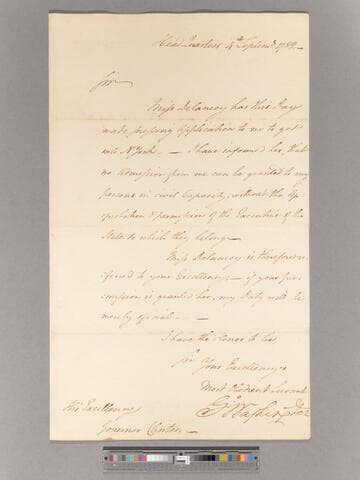 Head Quarters 4th Septemr 1782 —
Sir
Miss Delancey has this Day
made pressing Application to me to get
into N York. — I have informed her, that
no admission from me can be granted to any
persons in civil Capacity, without the Ap-
probation & permission of the Executive of the
State to which they belong —
Miss Delancey is therefore re-
ferred to your Excellency — if your per-
mission is granted her, my Duty will be
merely official — —
I have the Honor to be
Sir Your Excellencys
Most Obedient Servant
Go Washington
His Excellency
Governor Clinton —